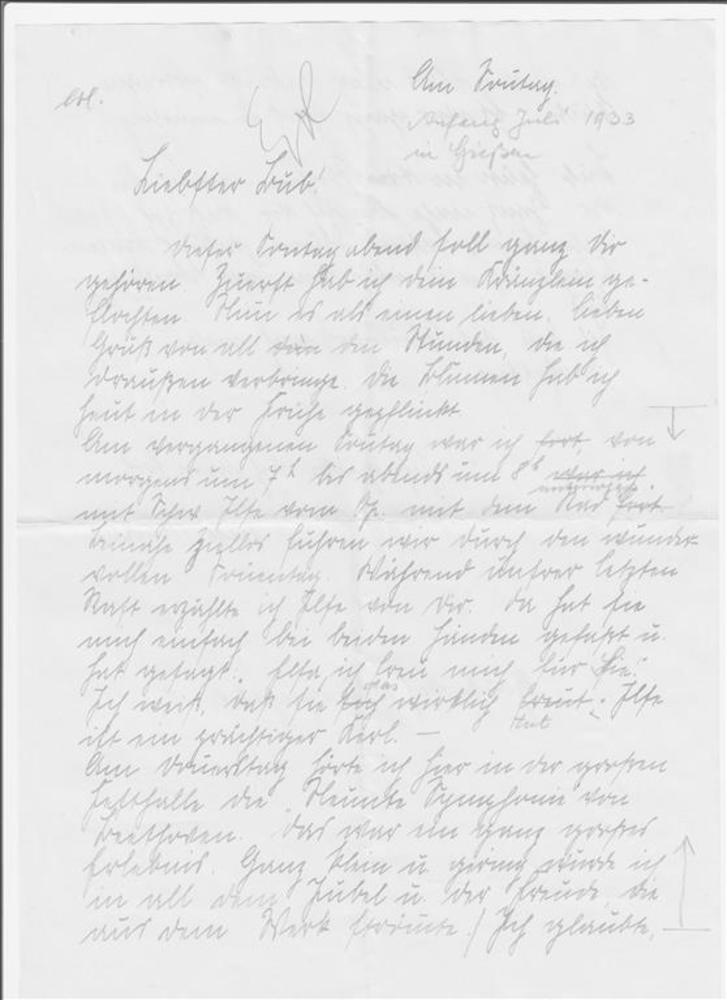 Am Sonntag.
Anfang Juli 1933
in Gießen
Liebster Bub!
Dieser Sonntagabend soll ganz Dir
gehören. Zuerst hab ich dein Kränzlein ge-
flochten. Nimm es als einen lieben, lieben
Gruß von all den Stunden, die ich
draußen verbringe. Die Blumen hab ich
heut in der Frühe gepflückt
Am vergangenen Sonntag war ich fort, von
morgens um 7h bis abends um 8h war ich
unterwegs
mit Schw. Ilse vom mit dem Rad fort
Beinahe ziellos fuhren wir durch den wunder-
vollen Sonnentag. Während unsrer letzten
Rast erzählte ich Ilse von Dir. Da hat sie
mich einfach bei beiden Händen gefaßt u.
hat gesagt: ich freu mich für Sie!
das
Ich weiß, daß sie sich wirklich freut. Ilse
tut
ist ein prächtiger Kerl. —
Am Donnerstag hörte ich hier in der großen
Festhalle die Neunte Symphonie von
Beethoven. Das war ein ganz großes
Erlebnis. Ganz klein u. gering wurde ich
in all dem Jubel u. der Freude, die
aus dem Werk strömte. / Ich glaubte,